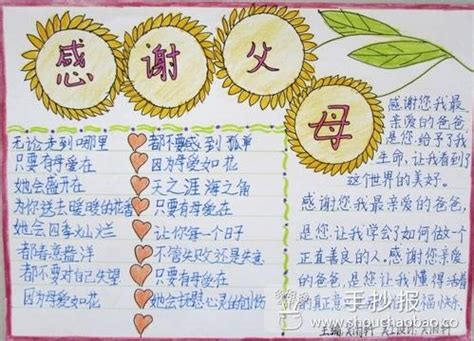 感谢父母
无论走到哪里
只要有母爱在
她会盛开在
为你送去暖暖的花香
她会四季灿烂
都春意盎洋
都不要对自己失望
因为母爱如花
都不要感到孤单
因为母爱如花
天之涯海之角
只要有母爱在
让你每一个日子
不管失败还是失意
只要有母爱在
她会抚慰心灵的创伤
感谢您,我最
亲爱的爸爸
是您,给予了我
生命,让我看到
这个世界的美好。
感谢您,我最亲爱的爸爸,
是您,让我学会了如何做个
正直善良的人。感谢您亲爱
的爸爸,是您让我懂得活着
的真正意
福快乐.
手抄报
www.shouchaobao.co